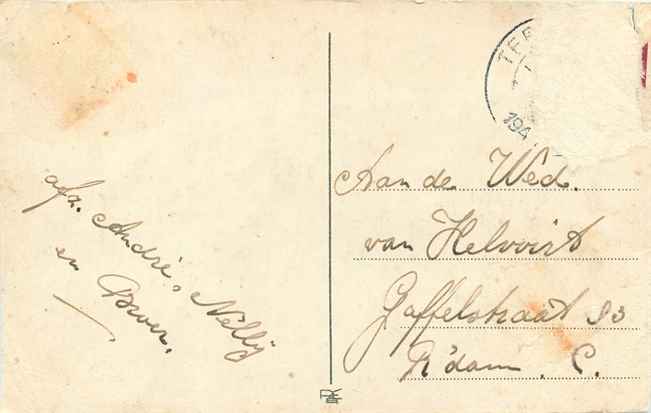 afz. André, Nellij
en Broer.
TE
194
Aan de Wed.
van Helvoirt
Gaffelstraat 83
R'dam. C.